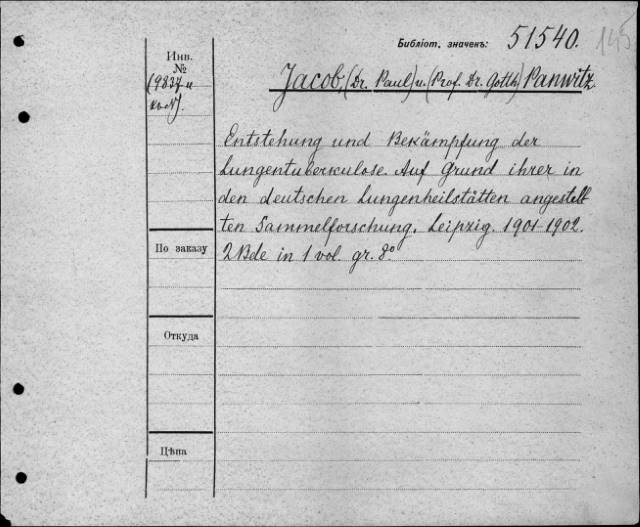 Библіот. значекъ: 51540. 145
Инв.
№
(9837 и
Jacob, (Dr. Paul) u. (Prof. Dr. Gotth.) Panwitz.
Entstehung und Bekämpfung der
Lungentuberkulose. Auf Grund ihrer in
den deutschen Lungenheilstätten angestell-
ten Sammelforschung. Leipzig. 1901-1902.
2 Bde in 1 vol. gr. 8°
По заказу
Откуда
Цѣна